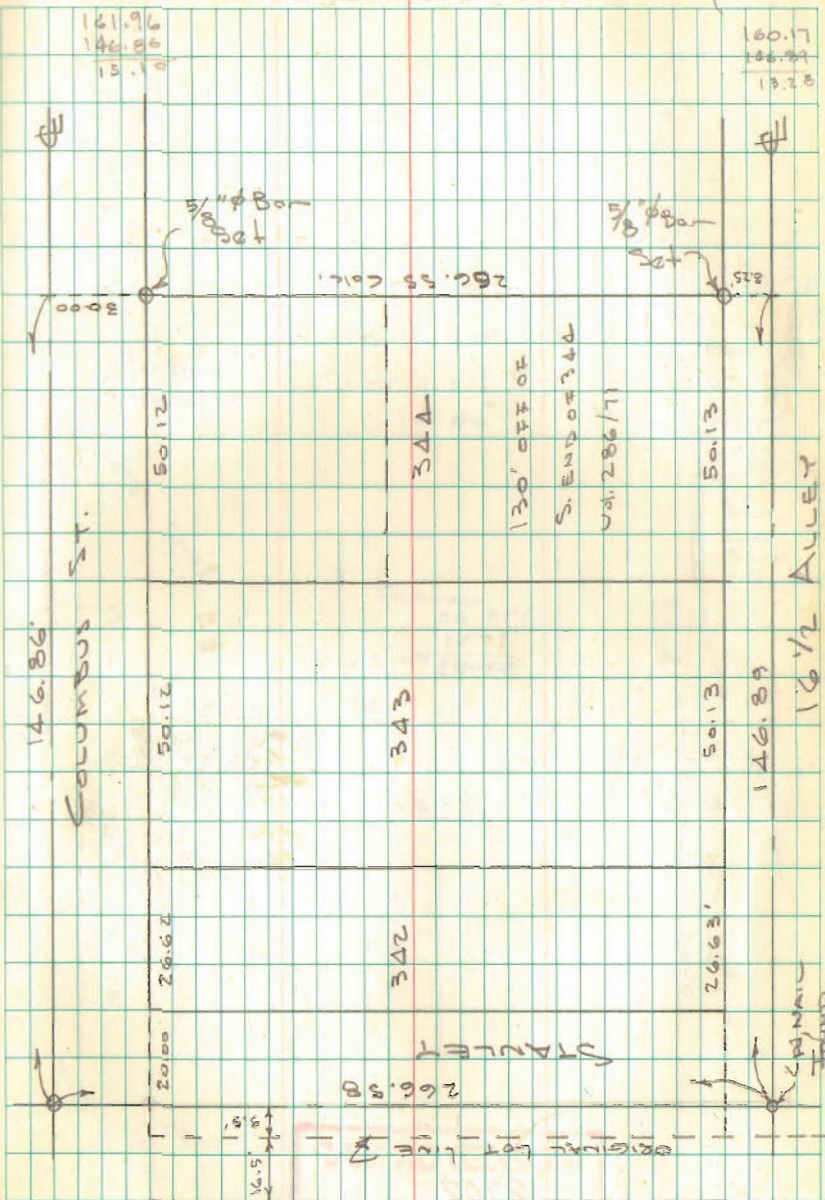 161.96
146.86
15.10
160.17
146.89
13.28
℄
℄
5/8"φ Bar
Set
5/8"φ Bar
Set
30.00
266.55 Calc.
8.25'
50.12
344
130' OFF OF
S. END OF 344
Vol. 286/71
50.13
146.86'
COLUMBUS ST.
50.12
343
50.13
146.89
16 1/2 ALLEY
26.62
342
26.63'
20.00
STANLEY
266.58
PK NAIL
FOUND
16.5'
3.5'
ORIGINAL LOT LINE